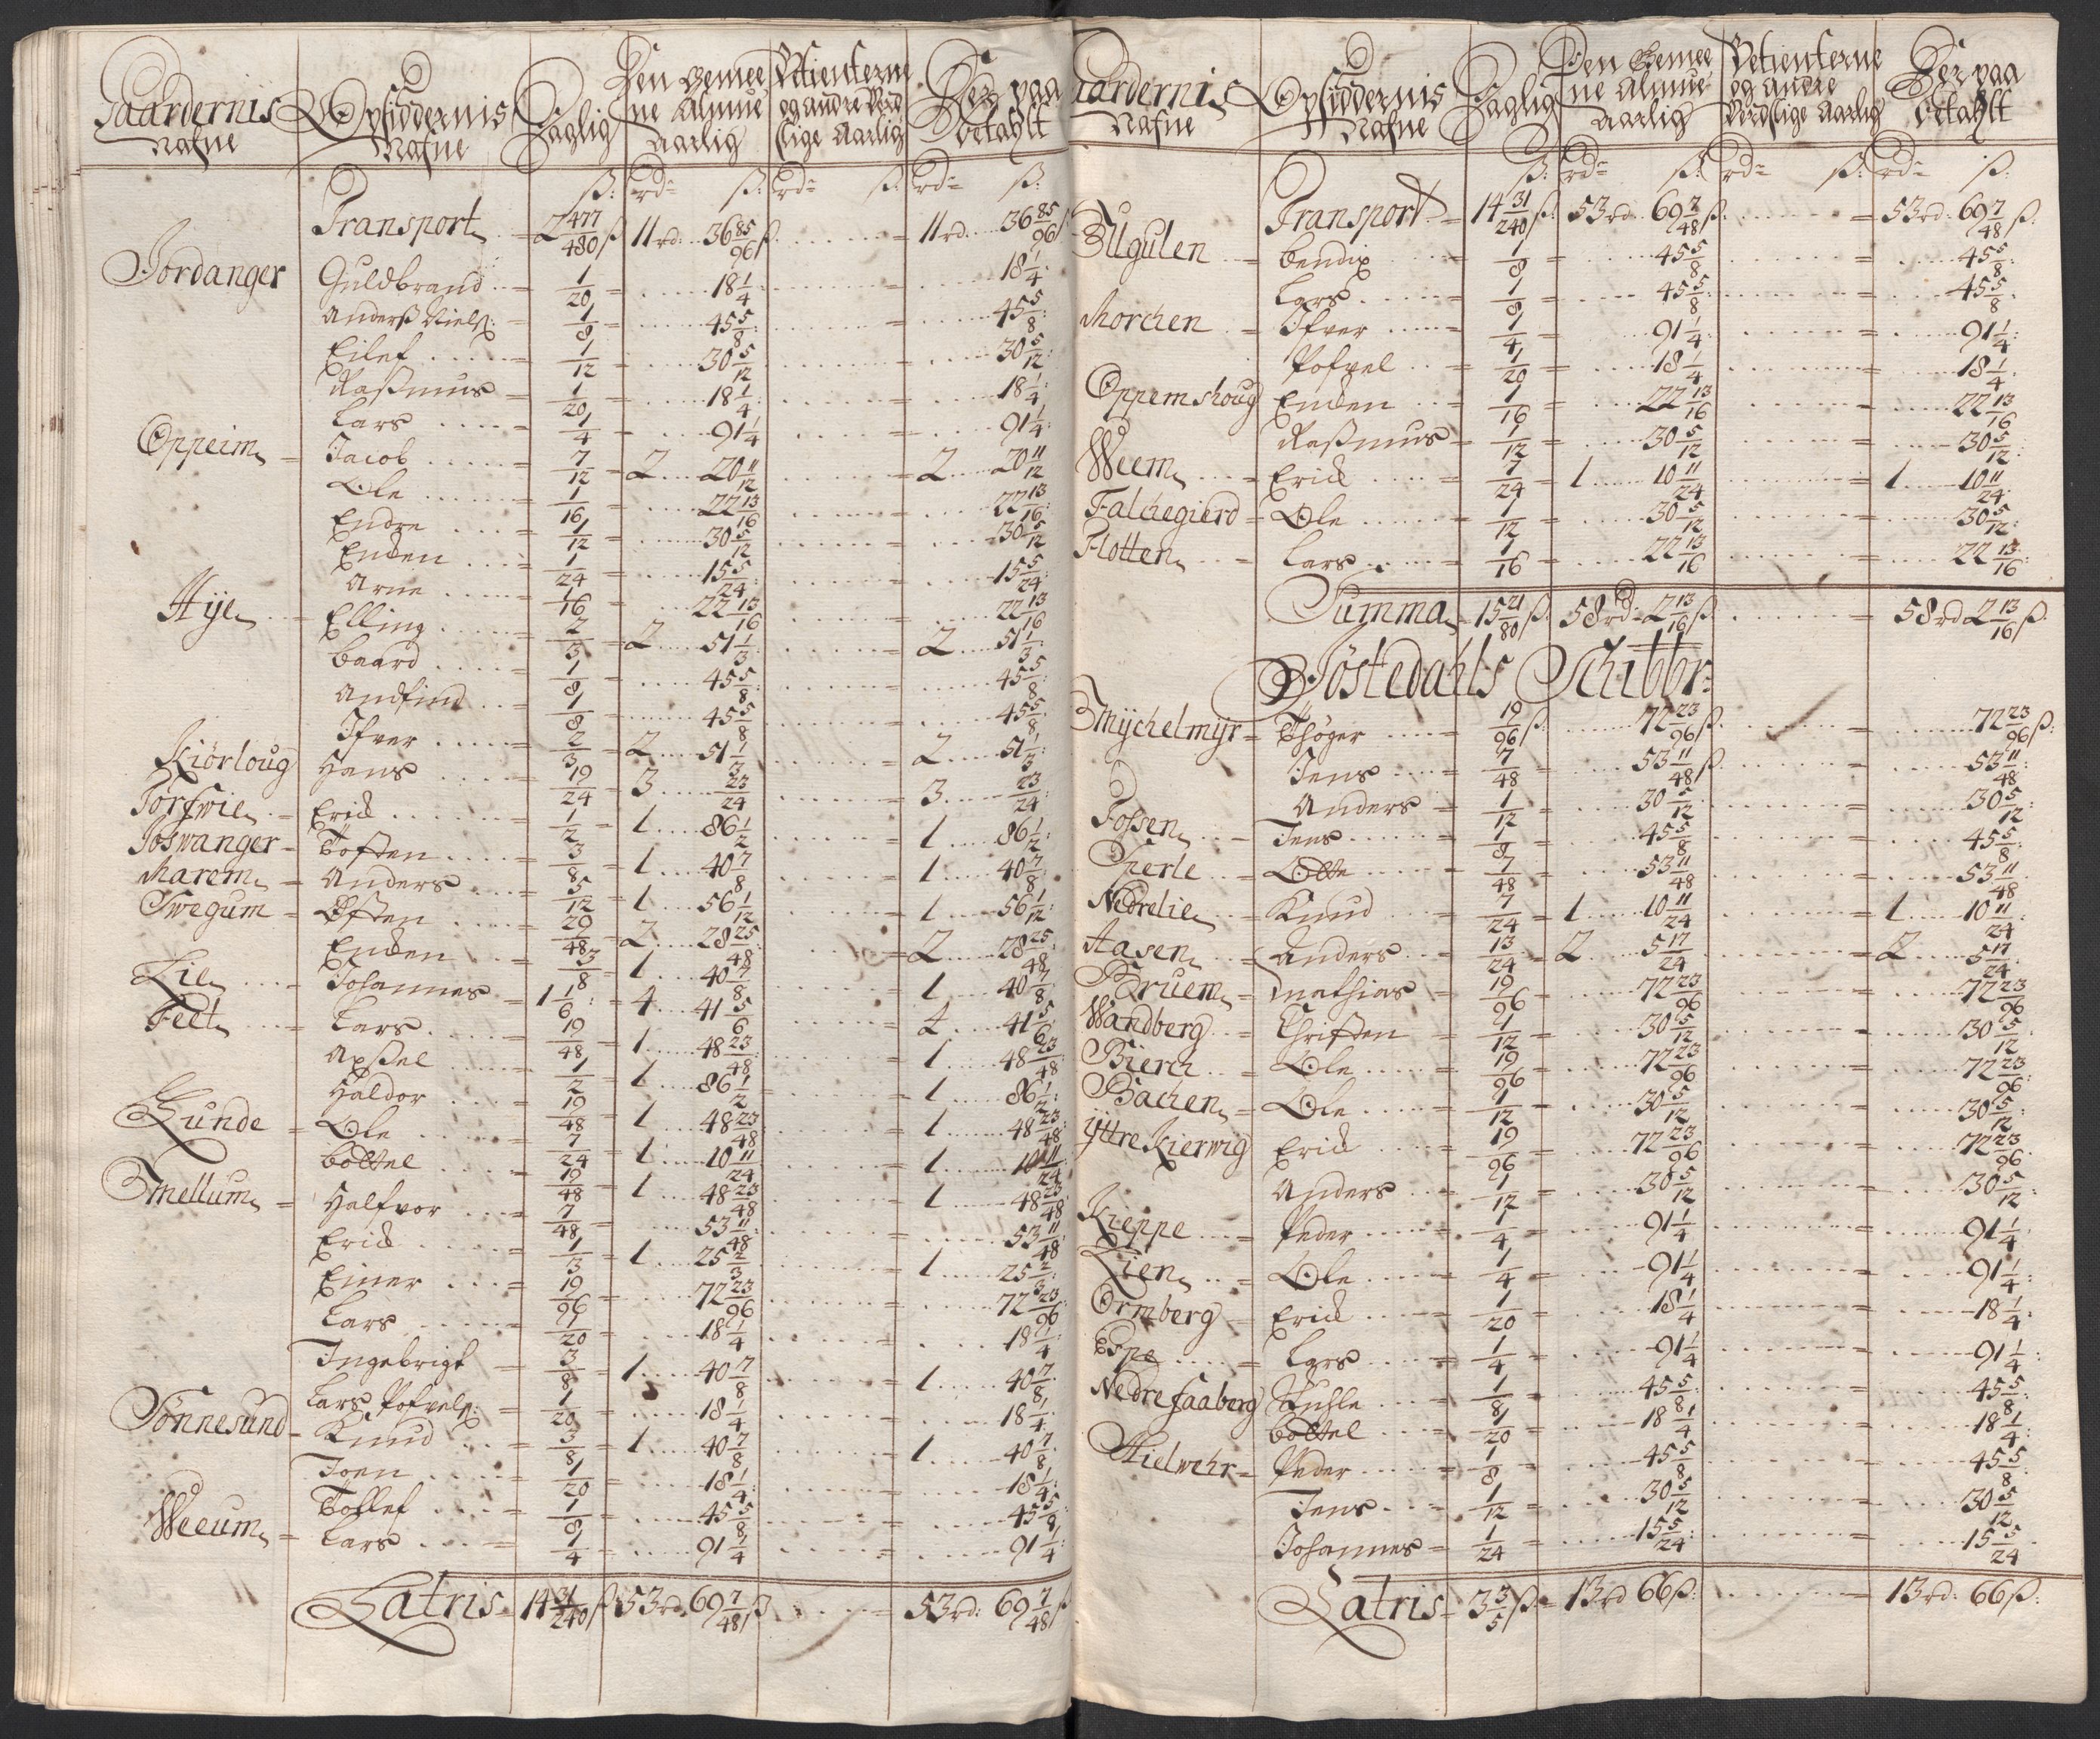 Gaardernis Nafne | Opsiddernis Nafne | Daglig | Den Gemeene Almue Aarlig | Petienterne og andre Verdslige Aarlig | Der paa betahlt
ß: | rd= ß: | rd= ß: | rd= ß:
Transport 2 477/480 ß | 11 rd: 36 85/96 ß | 11 rd: 36 85/96 ß
Jordanger Guldbrand 1/20 = 18 1/4 = 18 1/4:
Anderß Nielß: 1/8 = 45 5/8: = 45 5/8:
Eilef 1/12 = 30 5/12 = 30 5/12:
Raßmus 1/20 = 18 1/4: = 18 1/4:
Lars 1/4 = 91 1/4 = 91 1/4:
Oppeim Jacob 7/12 = 2 20 11/12 = 2 20 11/12
Ole 1/16 = 22 13/16 = 22 13/16:
Endre 1/12 = 30 5/12 = 30 5/12
Enden 1/24 = 15 5/24: = 15 5/24:
Arne 1/16 22 13/16 22 13/16
Hye Elling 2/3 = 2 51 1/3: = 2 51 1/3:
Baard 1/8 = 45 5/8: = 45 5/8
Andfind 1/8 = 45 5/8 = 45 5/8:
Ifver 2/3 = 2 51 1/3 = 2 51 1/3:
Kiörloug Hans 19/24 = 3 23/24 = 3 23/24:
Torfwie Erick 1/2 = 1 86 1/2 = 1 86 1/2:
Joswanger Tosten 3/8 = 1 40 7/8 = 1 40 7/8:
Marem Anders 5/12 = 1 56 1/12 = 1 56 1/12:
Swegum Østen 29/48 = 2 28 25/48: = 2 28 25/48:
Enden 3/8 = 1 40 7/8 = 1 40 7/8:
Lie Johannes 1 1/6: = 4 41 5/6 = 4 41 5/6:
Feet Lars 19/48 = 1 48 23/48: = 1 48 23/48:
Axßel 1/2 = 1 86 1/2 = 1 86 1/2:
Haldor 19/48 = 1 48 23/48 = 1 48 23/48:
Gunde Ole 7/24 = 1 10 11/24 = 1 10 11/24:
Bottel 19/48 = 1 48 23/48 = 1 48 23/48:
Mellum Halfvor 7/48 = 53 11/48: = 53 11/48:
Erick 1/3 = 1 25 2/3 = 1 25 2/3:
Einer 19/96 = 72 23/96 = 72 23/96:
Lars 1/20 = 18 1/4 = 18 1/4:
Ingebrigt 3/8 = 1 40 7/8 = 1 40 7/8:
Lars Pofvelß: 1/20 = 18 1/4 = 18 1/4:
Sonnesund Knud 3/8 = 1 40 7/8 = 1 40 7/8:
Joen 1/20 = 18 1/4: = 18 1/4:
Tollef 1/8 = 45 5/8 = 45 5/8:
Weeum Lars 1/4 = 91 1/4 = 91 1/4:
Latris 14 31/240 ß 53 rd: 69 7/48 ß = 53 rd: 69 7/48 ß
Gaardernis Nafne | Opsiddernis Nafne | Daglig | Den Gemeene Almue Aarlig | Petienterne og andre Verdslige Aarlig | Der paa betahlt
ß: | rd= ß: | rd= ß: | rd= ß:
Transport 14 31/240 ß: 53 rd: 69 7/48 ß: = 53 rd: 69 7/48 ß:
Ugulen Bendix 1/8 = 45 5/8 = 45 5/8:
Lars 1/8 = 45 5/8: = 45 5/8:
Morchen Ifver 1/4 = 91 1/4: = 91 1/4:
Pofvel 1/20 = 18 1/4 = 18 1/4:
Oppemshoug Enden 1/16 = 22 13/16 = 22 13/16
Raßmus 1/12 = 30 5/12 = 30 5/12:
Weem Erick 7/24 = 1 10 11/24 = 1 10 11/24:
Falchegierd Ole 1/12 = 30 5/12 = 30 5/12:
Flotten Lars 1/16 = 22 13/16 = 22 13/16:
Summa 15 21/80 ß: 58 rd= 2 13/16 ß: = 58 rd 2 13/16 ß:
Jostedahls Schibbr:
Mychelmyr Thöger 19/96 ß: 72 23/96 ß: = 72 23/96 ß:
Jens 7/48 = 53 11/48 ß: = 53 11/48:
Anders 1/12 = 30 5/12 = 30 5/12:
Fossen Jens 1/8 = 45 5/8 = 45 5/8:
Sperle Otte 7/48 = 53 11/48 = 53 11/48
Nedrelie Knud 7/24 = 1 10 11/24 = 1 10 11/24:
Aasen Anders 13/24 = 2 5 17/24 = 2 5 17/24:
Bruem Mathias 19/96 = 72 23/96 = 72 23/96
Wandberg Christen 1/12 = 30 5/12 = 30 5/12:
Bierch Ole 19/96 = 72 23/96 = 72 23/96:
Bachen Ole 1/12 = 30 5/12 = 30 5/12:
Yttre Kierwig Erick 19/96 = 72 23/96 = 72 23/96:
Anders 1/12 = 30 5/12 = 30 5/12:
Kieppe Peder 1/4 = 91 1/4 = 91 1/4
Lien Ole 1/4 = 91 1/4 = 91 1/4:
Ormberg Erick 1/20 = 18 1/4 = 18 1/4:
Espe Lars 1/4 = 91 1/4 = 91 1/4:
Nedre Faaberg 1/8 = 45 5/8: = 45 5/8:
Bottel 1/20 = 18 1/4 = 18 1/4:
Hielwehr Peder 1/8 = 45 5/8 = 45 5/8:
Jens 1/12 = 30 5/12 = 30 5/12
Johannes 1/24 = 15 5/24: = 15 5/24
Latris 3 3/5 ß = 13 rd 66 ß: = 13 rd: 66 ß: